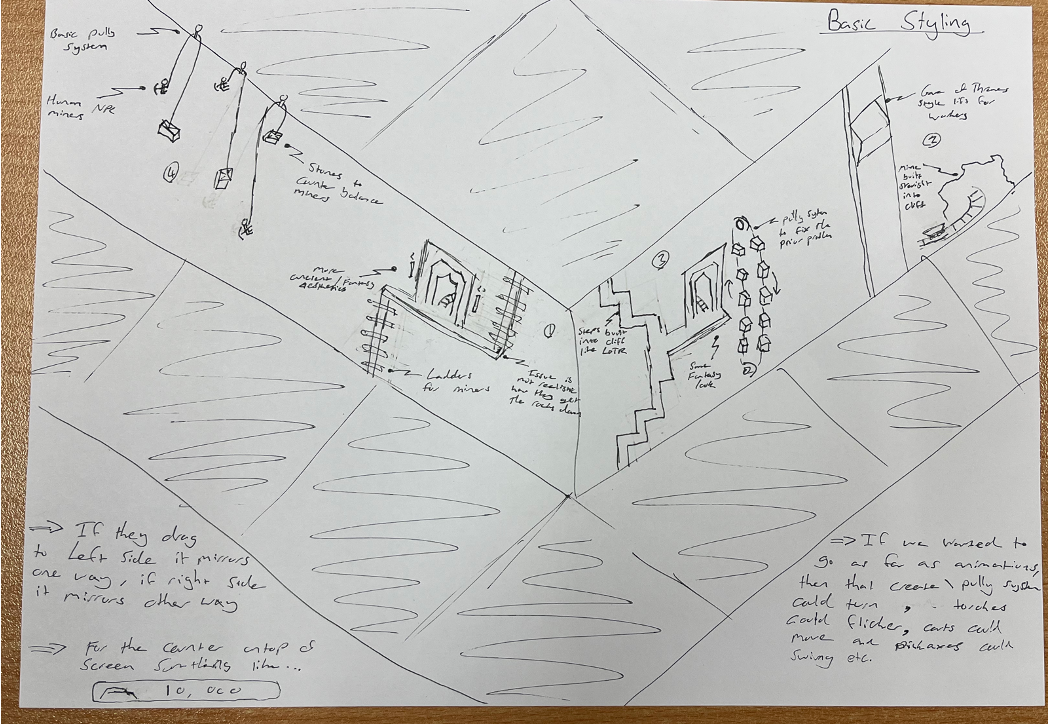 Basic Styling
Basic pully
system
Human
miners NPC
④
Stones to
counter balance
miners
Game of Thrones
style lifts for
workers
②
Mine
built
straight
into
cliff
more
ancient/Fantasy
aesthetics
①
Ladders
for miners
Issue is
not realistic
how they get
the rocks down
③
pully system
to fix the
prior problem
Steps built
into cliff
like LOTR
Same
Fantasy
look
=> If they drag
to Left side it mirrors
one way, if right side
it mirrors other way
=> For the counter ontop of
Screen something like...
10,000
=> If we wanted to
go as far as animations,
then that crease \ pully system
could turn, torches
could flicker, carts could
move and pickaxes could
swing etc.